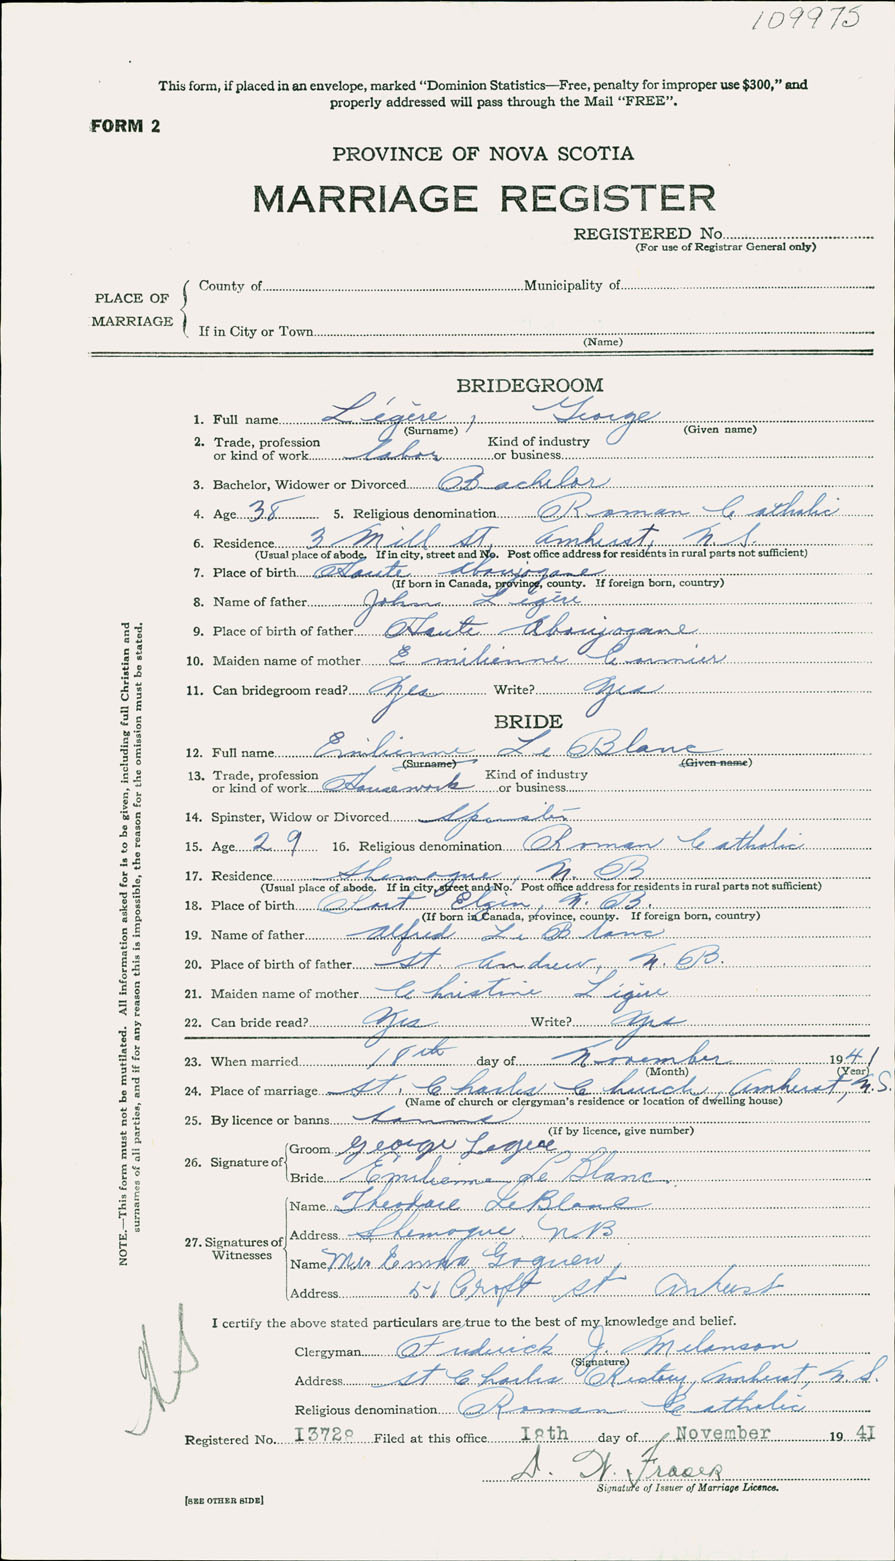 109975
This form, if placed in an envelope, marked "Dominion Statistics—Free, penalty for improper use $300," and
properly addressed will pass through the Mail "FREE".
FORM 2
PROVINCE OF NOVA SCOTIA
MARRIAGE REGISTER
REGISTERED No.
(For use of Registrar General only)
PLACE OF MARRIAGE
County of Municipality of
If in City or Town
(Name)
BRIDEGROOM
1. Full name Légère, George
(Surname) (Given name)
2. Trade, profession or kind of work labor Kind of industry or business
3. Bachelor, Widower or Divorced Bachelor
4. Age 38 5. Religious denomination Roman Catholic
6. Residence 3 Mill St, Amherst, N.S.
(Usual place of abode. If in city, street and No. Post office address for residents in rural parts not sufficient)
7. Place of birth Haute Aboujogane
(If born in Canada, province, county. If foreign born, country)
8. Name of father John Légère
9. Place of birth of father Haute Aboujogane
10. Maiden name of mother Emilienne Cormier
11. Can bridegroom read? Yes Write? Yes
BRIDE
12. Full name Emilienne Le Blanc
(Surname) (Given name)
13. Trade, profession or kind of work Housework Kind of industry or business
14. Spinster, Widow or Divorced Spinster
15. Age 29 16. Religious denomination Roman Catholic
17. Residence Shemogue, N. B
(Usual place of abode. If in city, street and No. Post office address for residents in rural parts not sufficient)
18. Place of birth Port Elgin, N. B.
(If born in Canada, province, county. If foreign born, country)
19. Name of father Alfred Le Blanc
20. Place of birth of father St. Andrew, N. B.
21. Maiden name of mother Christine Légère
22. Can bride read? Yes Write? Yes
23. When married 18th day of November 1941
(Month) (Year)
24. Place of marriage St. Charles Church, Amherst, N.S.
(Name of church or clergyman's residence or location of dwelling house)
25. By licence or banns banns
(If by licence, give number)
26. Signature of
Groom George Legere
Bride Emilienne Le Blanc.
27. Signatures of Witnesses
Name Theodore LeBlanc
Address Shemogue N B
Name Mrs Emma Goguen,
Address 51 Croft St Amherst
I certify the above stated particulars are true to the best of my knowledge and belief.
Clergyman Frederick J. Melanson
(Signature)
Address St Charles Rectory, Amherst, N.S.
Religious denomination Roman Catholic
Registered No. 13728 Filed at this office 18th day of November 1941
(Signature of Issuer of Marriage Licence.
[SEE OTHER SIDE]
NOTE.—This form must not be mutilated. All information asked for is to be given, including full Christian and
surnames of all parties, and if for any reason this is impossible, the reason for the omission must be stated.